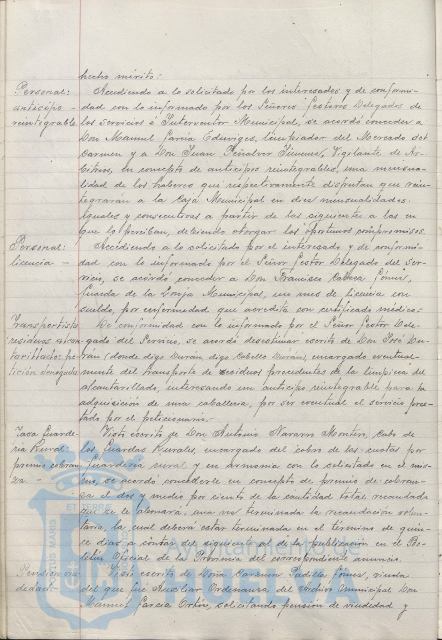 hecho mérito:
Personal: Accediendo a lo solicitado por los interesados y de conformi-
anticipo dad con lo informado por los Señores Gestores Delegados de
reintegrable los servicios e Interventor Municipal, se acordó conceder a
Don Manuel García Eduviges, limpiador del Mercado del
Carmen y a Don Juan Peñalver Jimena, Vigilante de Ar-
bitrios, en concepto de anticipo reintegrables, una mensua-
lidad de los haberes que respectivamente disfrutan que rein-
tegrarán a la Caja Municipal en diez mensualidades.
iguales y consecutivas a partir de las siguiente a las en
que lo perciban, debiendo otorgar los oportunos compromisos.
Personal: Accediendo a lo solicitado por el interesado y de conformi-
licencia - dad con lo informado por el Señor Gestor Delegado del Ser-
vicio, se acordó conceder a Don Francisco Cabeza Gómez,
Guarda de la Lonja Municipal, un mes de licencia con
sueldo, por enfermedad que acredita con certificado médico.
Transportista De conformidad con lo informado por el Señor Gestor Dele-
residuos alcan gado del Servicio, se acordó desestimar escrito de Don José Du-
tarillados: pe rán (donde digo Durán, digo Cabello Durán), encargado eventual-
tición denegada mente del transporte de residuos procedentes de la limpieza del
alcantarillado, interesando un anticipo reintegrable para la
adquisición de una caballería, por ser eventual el servicio pres-
tado por el peticionario.
Tasa Guarde Visto escrito de Don Antonio Navarro Montero, Cabo de
ría Rural: los Guardas Rurales, encargado del cobro de las cuotas por
premio cobran Guardería rural y en armonía con lo solicitado en el mis-
za - mo, se acordó concederle en concepto de premio de cobran-
za el dos y medio por ciento de la cantidad total recaudada
que se le abonará, una vez terminada la recaudación volun-
taria, la cual deberá estar terminada en el término de quin-
ce días a contar del siguiente al de la publicación en el Bo-
letín Oficial de la Provincia del correspondiente anuncio.
Pensión viu Visto escrito de Doña Carmen Padilla Gómez, viuda
dedad: del que fué Auxiliar Ordenanza del Archivo Municipal Don
Manuel García Ortín, solicitando pensión de viudedad y